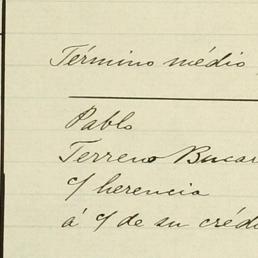 Término médio
Pablo
Terreno Bucar
c/ herencia
á c/ de su crédi